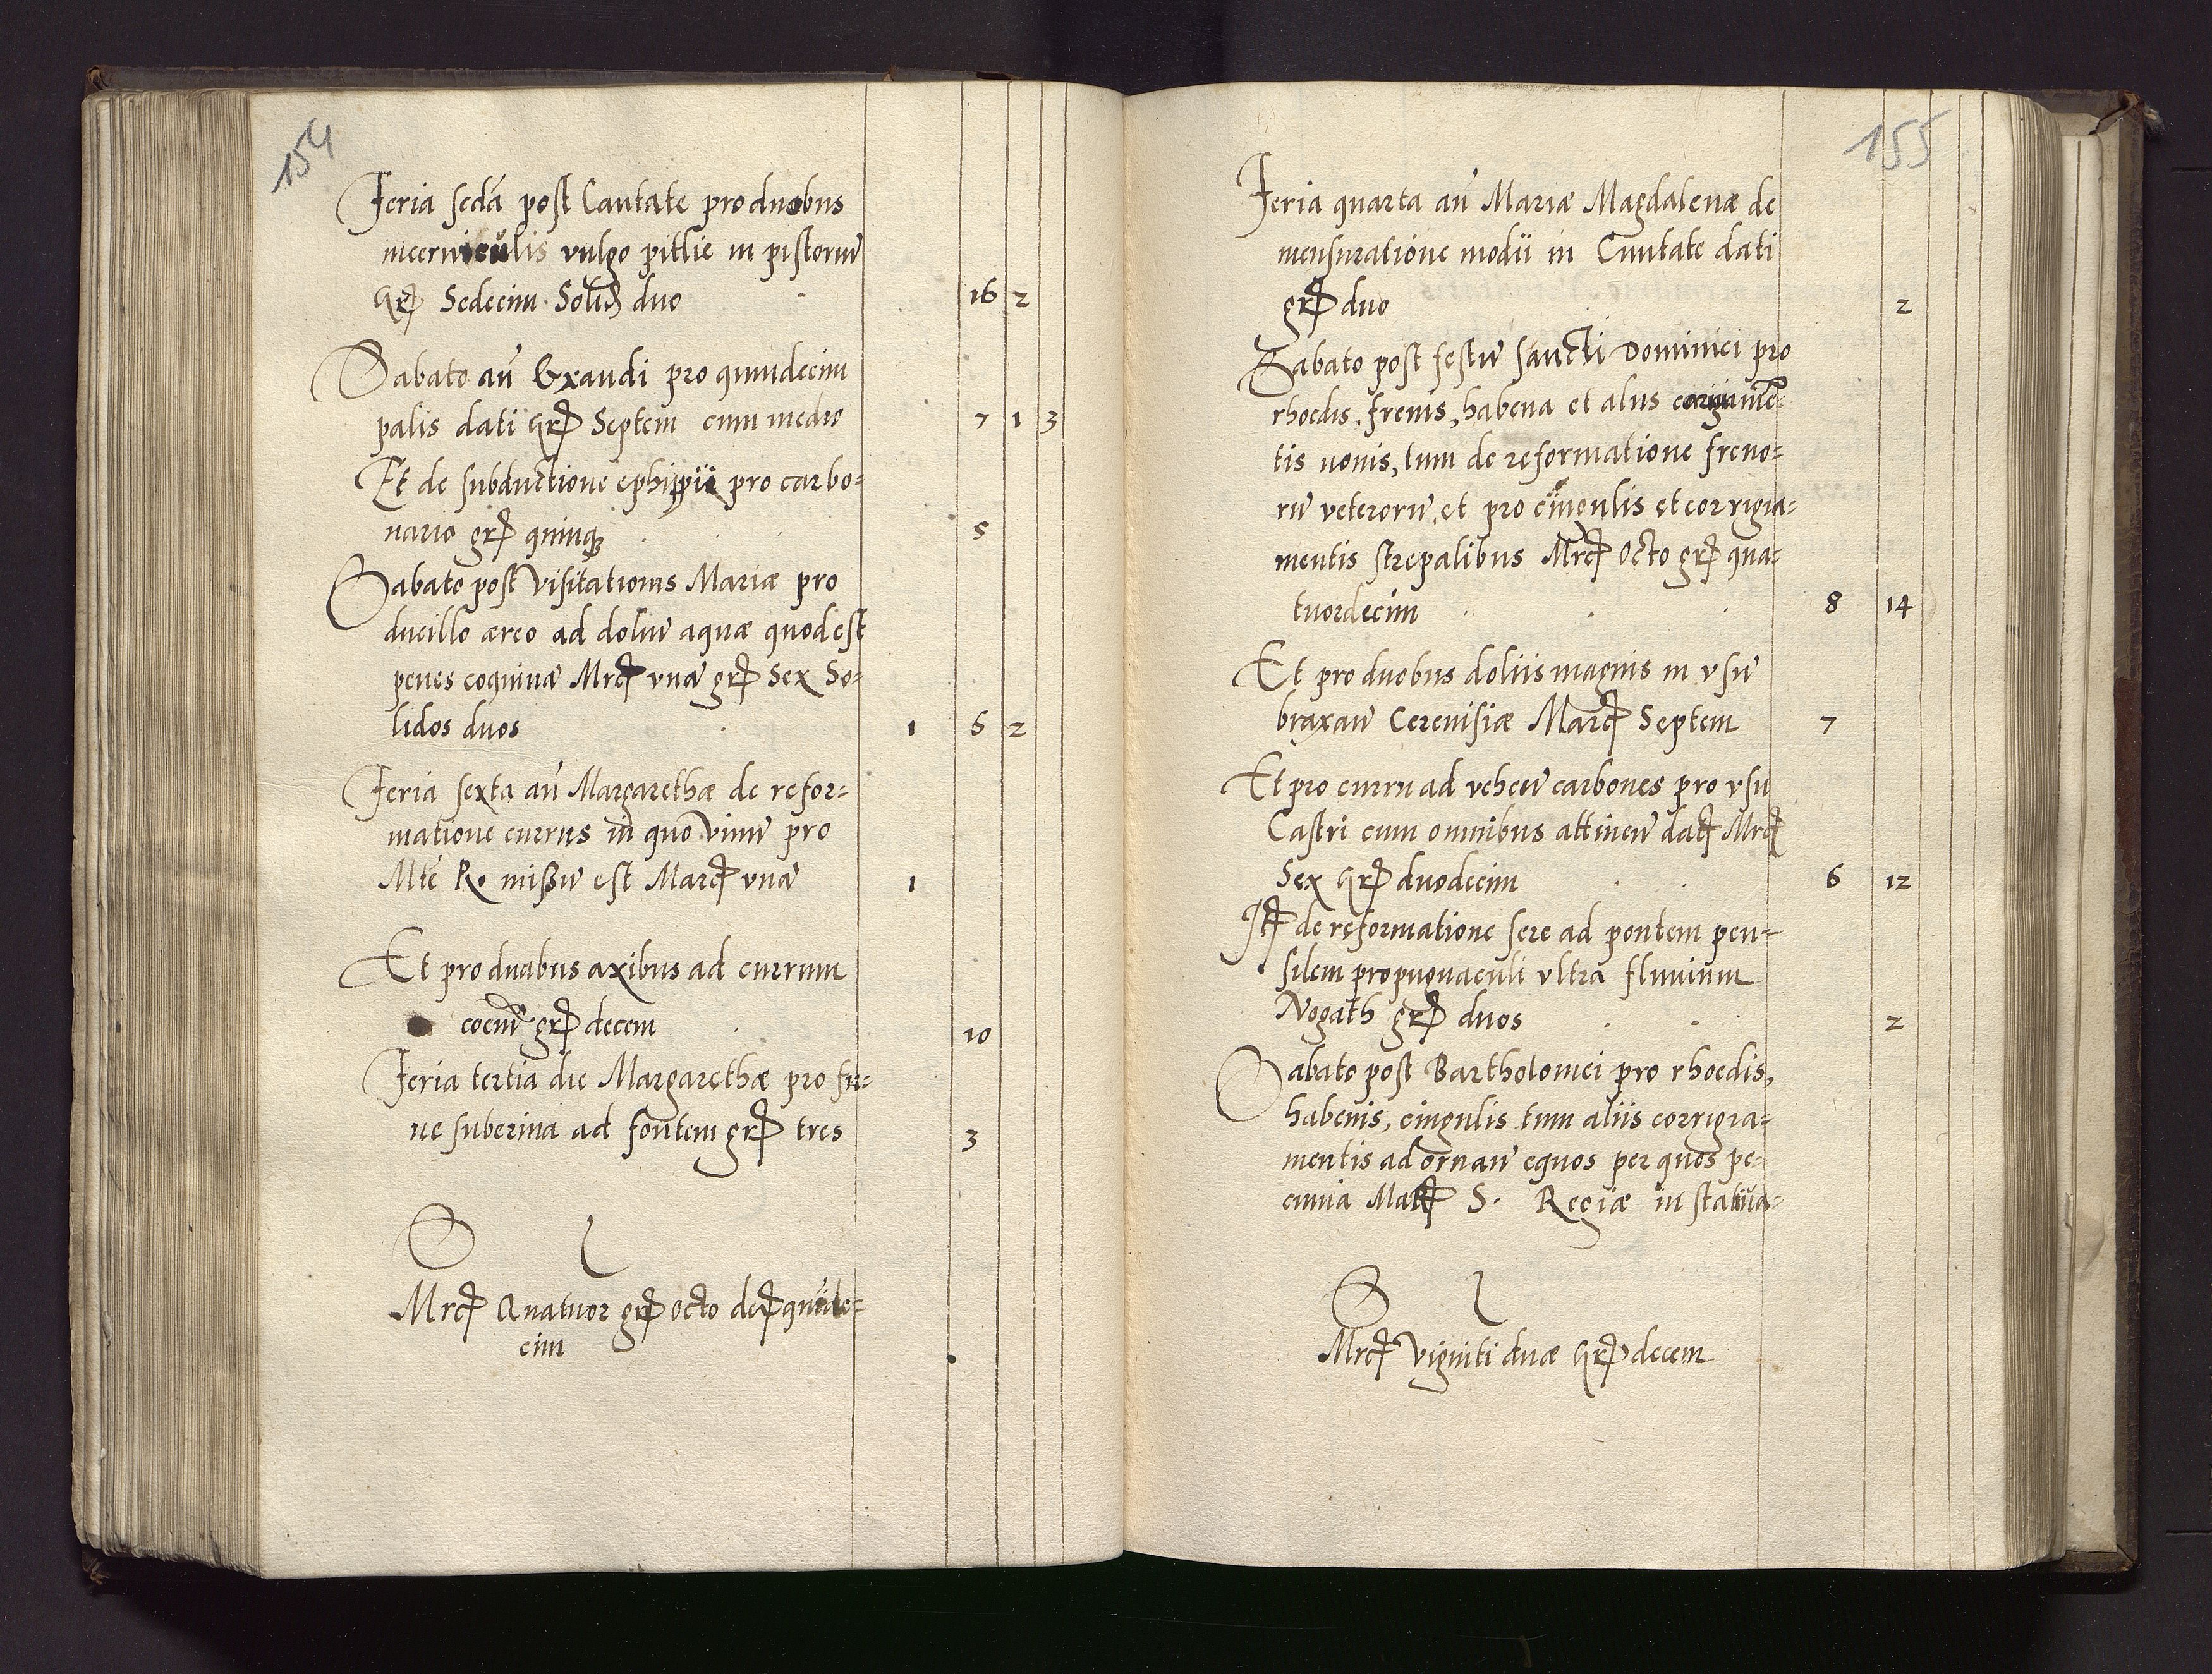 154
Feria seda post Cantate pro duobus
incerniculis vulgo pitlie in pistoriu
gr Sedecim Solid duo 16 2
Sabato an Exaudi pro quindecim
palis dati gr Septem cum medio 7 1 3
Et de subductione ephippii pro carbo=
nario gr quinq 5
Sabato post Visitationis Mariæ pro
ducillo æreo ad doliu aquæ quod est
penes coquina Mrc vna gr Sex So=
lidos duos 1 6 2
Feria sexta an Margarethæ de refor=
matione currus in quo vinu pro
Mte R. missu est Marc vna 1
Et pro duabus axibus ad currum
coem gr decem 10
Feria tertia die Margarethæ pro fu=
ne suberina ad fontem gr tres 3
S l
Mrc Quatuor gr octo de quide=
cim
155
Feria quarta an Mariæ Magdalenæ de
mensuratione modii in Ciuitate dati
gr duo 2
Sabato post festu Sancti Dominici pro
rhoedis, frenis, habena et aliis corigiame=
tis nouis, tum de reformatione freno=
ru veteroru, et pro cingulis et corrigia=
mentis strepalibus Mrc Octo gr qua=
tuordecim 8 14
Et pro duobus doliis magnis in vsu
braxan Cerenisiæ Marc Septem 7
Et pro curru ad vehen carbones pro vsu
Castri cum omnibus attinen dat Mrc
Sex gr duodecim 6 12
It de reformatione sere ad pontem pen=
silem propugnaculi vltra fluuium
Nogath gr duos 2
Sabato post Bartholomei pro rhoedis,
habenis, cingulis tum aliis corrigia=
mentis ad ornan equos per quos pe=
cunia Mat S. Regiæ in statiua=
S l
Mrc Viginti duæ gr decem